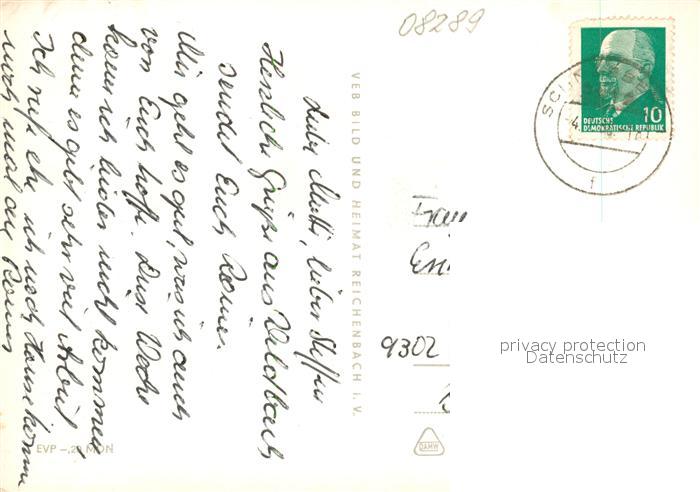 08289
DEUTSCHE
DEMOKRATISCHE REPUBLIK
10
Liebe Mutti, lieber Steffen
Herzliche Grüße aus Wildbach
sendet Euch Rainer.
Mir geht es gut, was ich auch
von Euch hoffe. Diese Woche
komm ich leider nicht kommen,
denn es gibt sehr viel Arbeit
Ich rufe ehe ich nach Hause komme
noch mal an Rainer
VEB BILD UND HEIMAT REICHENBACH I. V.
EVP –,20 MDN
Frau
9302
DAMW
privacy protection
Datenschutz